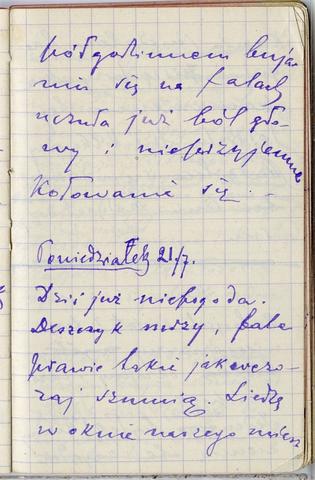 półgodzinnem buja-
niu się na falach
uczuła już ból gło-
wy i nieprzyjemne
kołowanie się. -
Poniedziałek 21/7.
Dziś już niepogoda.
Deszczyk mży, fale
prawie takie jak wczo-
raj szumią. Siedzę
w oknie naszego miesz